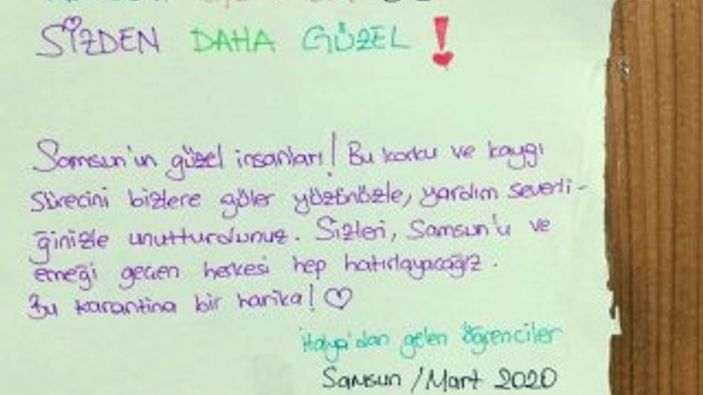 SİZDEN DAHA GÜZEL !
Samsun'un güzel insanları! Bu korku ve kaygı
sürecini bizlere güler yüzünüzle, yardım severli-
ğinizle unutturdunuz. Sizleri, Samsun'u ve
emeği geçen herkesi hep hatırlayacağız.
Bu karantina bir harika! ♡
İtalya'dan gelen öğrenciler
Samsun / Mart 2020